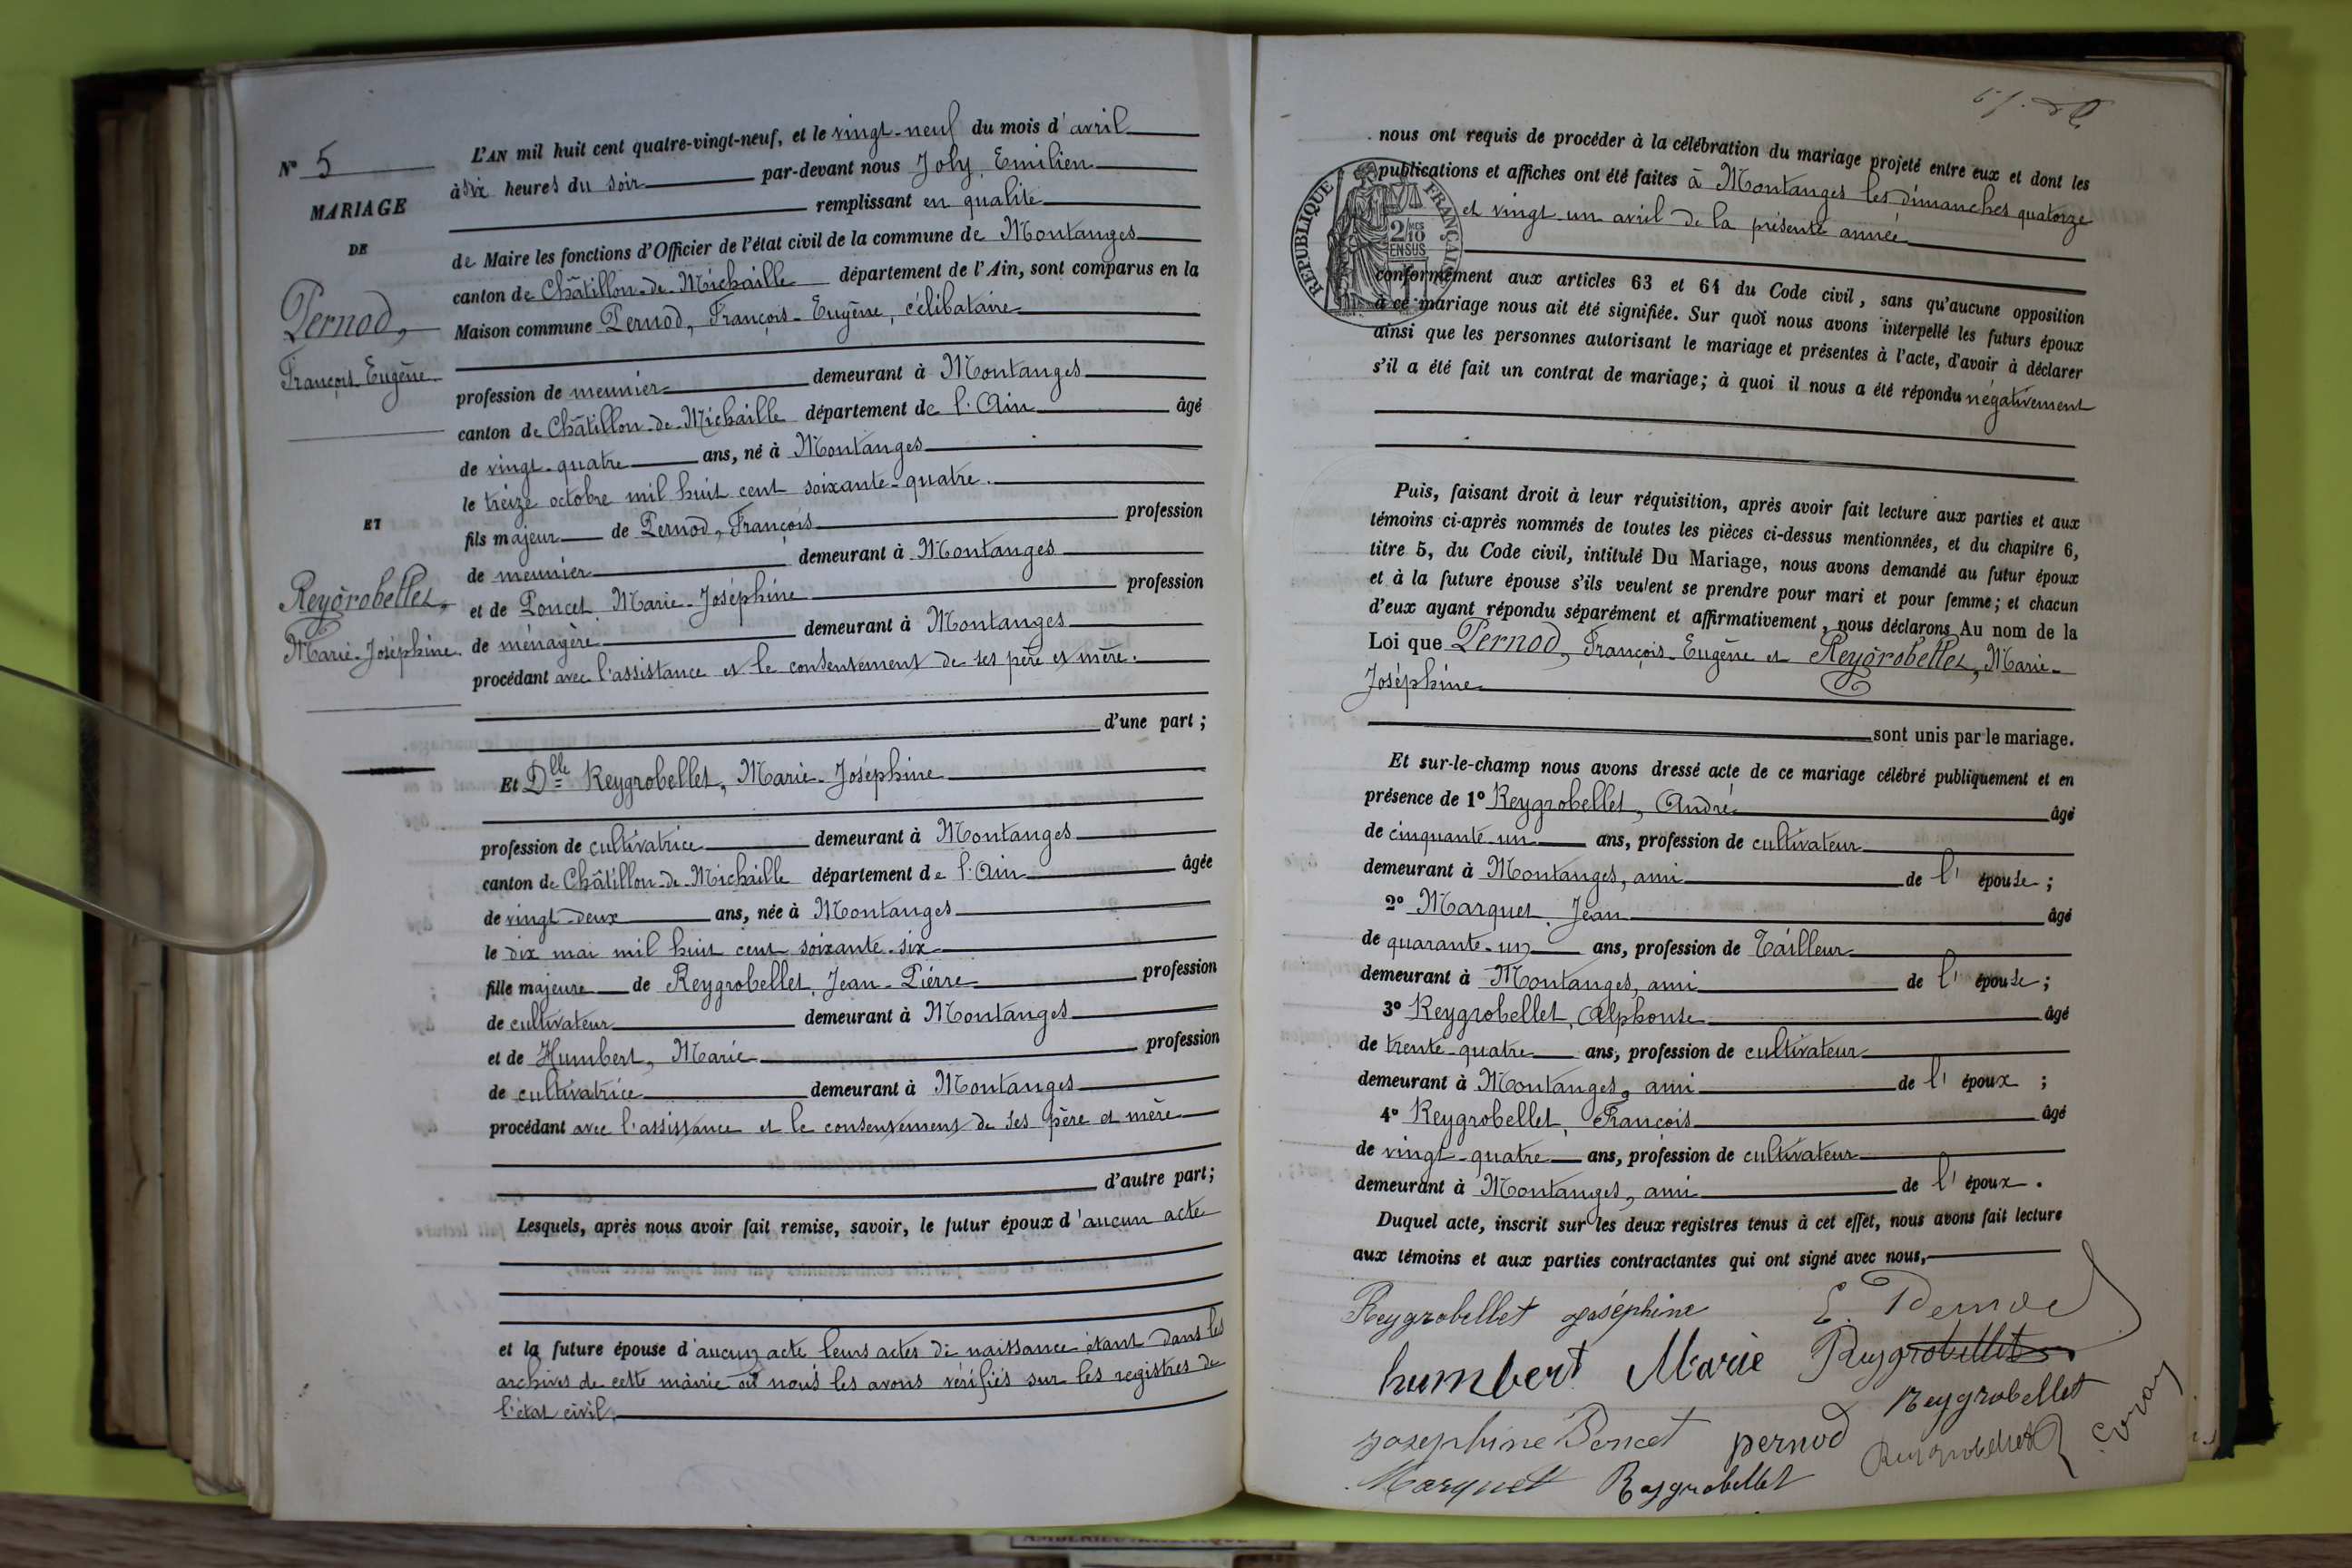 N° 5
MARIAGE
DE
Pernod,
François-Eugène
ET
Reygrobellet,
Marie-Joséphine
L'AN mil huit cent quatre-vingt-neuf, et le vingt-neuf du mois d'avril
à six heures du soir par-devant nous Joly, Emilien
remplissant en qualité
de Maire les fonctions d'Officier de l'état civil de la commune de Montanges
canton de Châtillon-de-Michaille département de l'Ain, sont comparus en la
Maison commune Pernod, François-Eugène, célibataire
profession de meunier demeurant à Montanges
canton de Châtillon-de-Michaille département de l'Ain âgé
de vingt-quatre ans, né à Montanges
le treize octobre mil huit cent soixante-quatre.
fils majeur de Pernod, François profession
de meunier demeurant à Montanges
et de Poncet Marie-Joséphine profession
de ménagère demeurant à Montanges
procédant avec l'assistance et le consentement de ses père et mère.
d'une part ;
Et Dlle Reygrobellet, Marie-Joséphine
profession de cultivatrice demeurant à Montanges
canton de Châtillon-de-Michaille département de l'Ain âgée
de vingt-deux ans, née à Montanges
le dix mai mil huit cent soixante-six
fille majeure de Reygrobellet, Jean-Pierre profession
de cultivateur demeurant à Montanges
et de Humbert, Marie profession
de cultivatrice demeurant à Montanges
procédant avec l'assistance et le consentement de ses père et mère
d'autre part ;
Lesquels, après nous avoir fait remise, savoir, le futur époux d'aucun acte
et la future épouse d'aucun acte leurs actes de naissance étant dans les
archives de cette mairie où nous les avons vérifiés sur les registres de
l'état civil.
nous ont requis de procéder à la célébration du mariage projeté entre eux et dont les
publications et affiches ont été faites à Montanges les dimanches quatorze
et vingt-un avril de la présente année
REPUBLIQUE FRANÇAISE
2 MES
10
EN SUS
conformément aux articles 63 et 64 du Code civil, sans qu'aucune opposition
à ce mariage nous ait été signifiée. Sur quoi nous avons interpellé les futurs époux
ainsi que les personnes autorisant le mariage et présentes à l'acte, d'avoir à déclarer
s'il a été fait un contrat de mariage; à quoi il nous a été répondu négativement
Puis, faisant droit à leur réquisition, après avoir fait lecture aux parties et aux
témoins ci-après nommés de toutes les pièces ci-dessus mentionnées, et du chapitre 6,
titre 5, du Code civil, intitulé Du Mariage, nous avons demandé au futur époux
et à la future épouse s'ils veulent se prendre pour mari et pour femme; et chacun
d'eux ayant répondu séparément et affirmativement, nous déclarons Au nom de la
Loi que Pernod, François-Eugène et Reygrobellet, Marie-
Joséphine
sont unis par le mariage.
Et sur-le-champ nous avons dressé acte de ce mariage célébré publiquement et en
présence de 1° Reygrobellet, André âgé
de cinquante-un ans, profession de cultivateur
demeurant à Montanges, ami de l'épouse ;
2° Marquet, Jean âgé
de quarante-un ans, profession de Tailleur
demeurant à Montanges, ami de l'épouse ;
3° Reygrobellet, Alphonse âgé
de trente-quatre ans, profession de cultivateur
demeurant à Montanges, ami de l'époux ;
4° Reygrobellet, François âgé
de vingt-quatre ans, profession de cultivateur
demeurant à Montanges, ami de l'époux.
Duquel acte, inscrit sur les deux registres tenus à cet effet, nous avons fait lecture
aux témoins et aux parties contractantes qui ont signé avec nous,
Reygrobellet joséphine E. Pernod
humbert Marie Reygrobellet
Reygrobellet
josephine Poncet pernod Reygrobellet
Marquet Reygrobellet